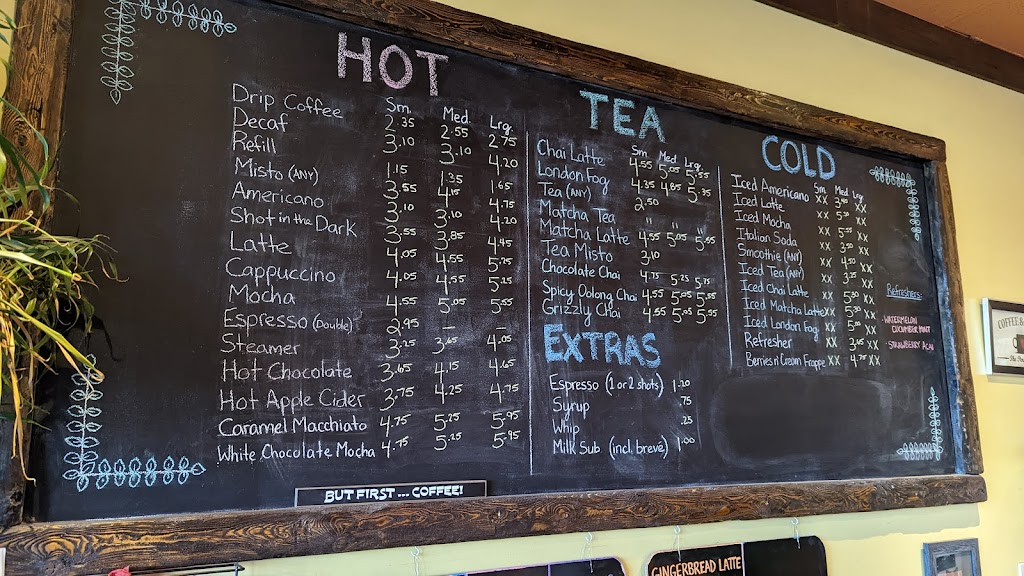 HOT
Sm. Med. Lrg.
Drip Coffee 2.35 2.55 2.75
Decaf 3.10 3.10 4.20
Refill 1.15 1.35 1.65
Misto (ANY) 3.55 4.15 4.75
Americano 3.10 3.10 4.20
Shot in the Dark 3.55 3.85 4.45
Latte 4.05 4.55 5.75
Cappuccino 4.05 4.55 5.25
Mocha 4.55 5.05 5.55
Espresso (Double) 2.95 — —
Steamer 3.25 3.65 4.05
Hot Chocolate 3.65 4.15 4.65
Hot Apple Cider 3.75 4.25 4.75
Caramel Macchiato 4.75 5.25 5.95
White Chocolate Mocha 4.75 5.25 5.95
BUT FIRST ... COFFEE!
TEA
Sm Med Lrg.
Chai Latte 4.55 5.05 5.55
London Fog 4.35 4.85 5.35
Tea (ANY) 2.50
Matcha Tea " " "
Matcha Latte 4.55 5.05 5.55
Tea Misto 3.10
Chocolate Chai 4.75 5.25 5.75
Spicy Oolong Chai 4.55 5.05 5.55
Grizzly Chai 4.55 5.05 5.55
EXTRAS
Espresso (1 or 2 shots) 1.20
Syrup .75
Whip .25
Milk Sub (incl. breve) 1.00
COLD
Sm Med Lrg
Iced Americano XX XX
Iced Latte XX XX
Iced Mocha XX XX
Italian Soda XX XX
Smoothie (ANY) XX XX
Iced Tea (ANY) XX XX
Iced Chai Latte XX XX
Iced Matcha Latte XX XX
Iced London Fog XX XX
Refresher XX XX
Berries n Cream Frappe XX 4.75 XX
Refreshers:
- WATERMELON CUCUMBER MINT
- STRAWBERRY ACAI
COFFEE
GINGERBREAD LATTE